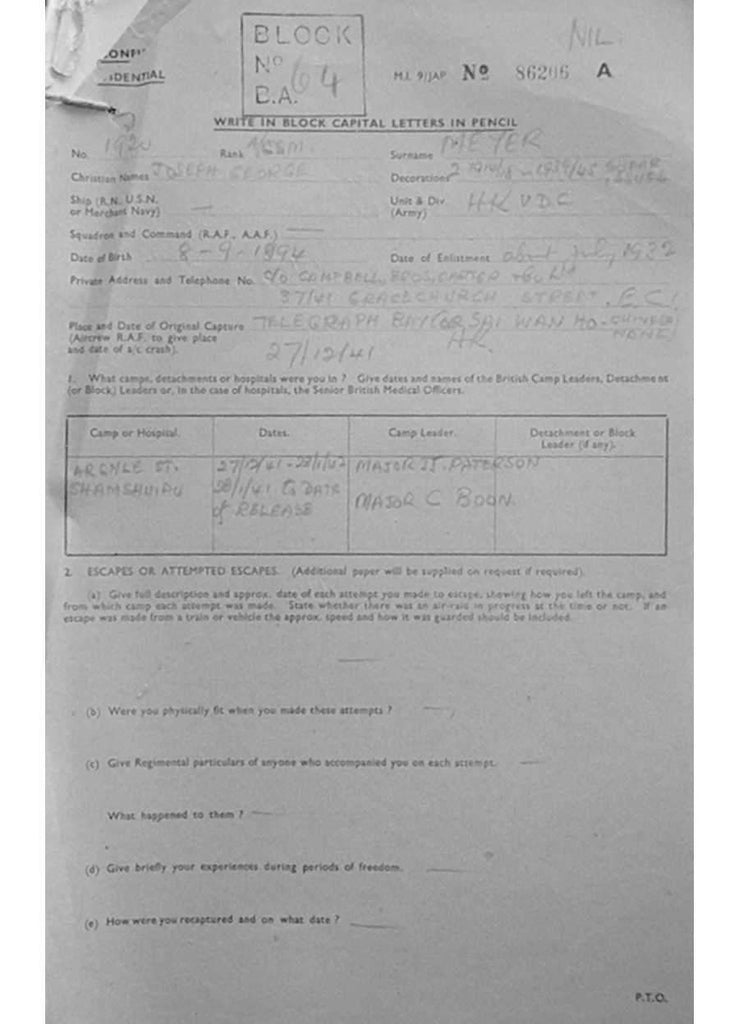 CONFI-
DENTIAL
BLOCK
No 64
B.A.
NIL.
M.I. 9/JAP No 86206 A
WRITE IN BLOCK CAPITAL LETTERS IN PENCIL
No. 1920 Rank Surname MEYER
Christian Names JOSEPH GEORGE Decorations 2 1914/18 - 1939/45
Ship (R.N. U.S.N. or Merchant Navy) — Unit & Div. (Army) HKVDC
Squadron and Command (R.A.F., A.A.F.) —
Date of Birth 8-9-1894 Date of Enlistment about July, 1932
Private Address and Telephone No. c/o CAMPBELL, BROS, CARTER & Co Ltd
37/41 GRACECHURCH STREET. E.C.1
Place and Date of Original Capture TELEGRAPH BAY (OR SAI WAN HO-
(Aircrew R.A.F. to give place HK.
and date of a/c crash). 27/12/41
1. What camps, detachments or hospitals were you in ? Give dates and names of the British Camp Leaders, Detachment
(or Block) Leaders or, in the case of hospitals, the Senior British Medical Officers.
Camp or Hospital. Dates. Camp Leader. Detachment or Block
Leader (if any).
ARGYLE ST. 27/12/41 - 28/1/42 MAJOR J. PATERSON
SHAMSHUIPO 28/1/41 to DATE MAJOR C BOON.
of RELEASE
2. ESCAPES OR ATTEMPTED ESCAPES. (Additional paper will be supplied on request if required).
(a) Give full description and approx. date of each attempt you made to escape, showing how you left the camp, and
from which camp each attempt was made. State whether there was an air-raid in progress at the time or not. If an
escape was made from a train or vehicle the approx. speed and how it was guarded should be included.
—
(b) Were you physically fit when you made these attempts ? —
(c) Give Regimental particulars of anyone who accompanied you on each attempt. —
What happened to them ? —
(d) Give briefly your experiences during periods of freedom. —
(e) How were you recaptured and on what date ? —
P.T.O.